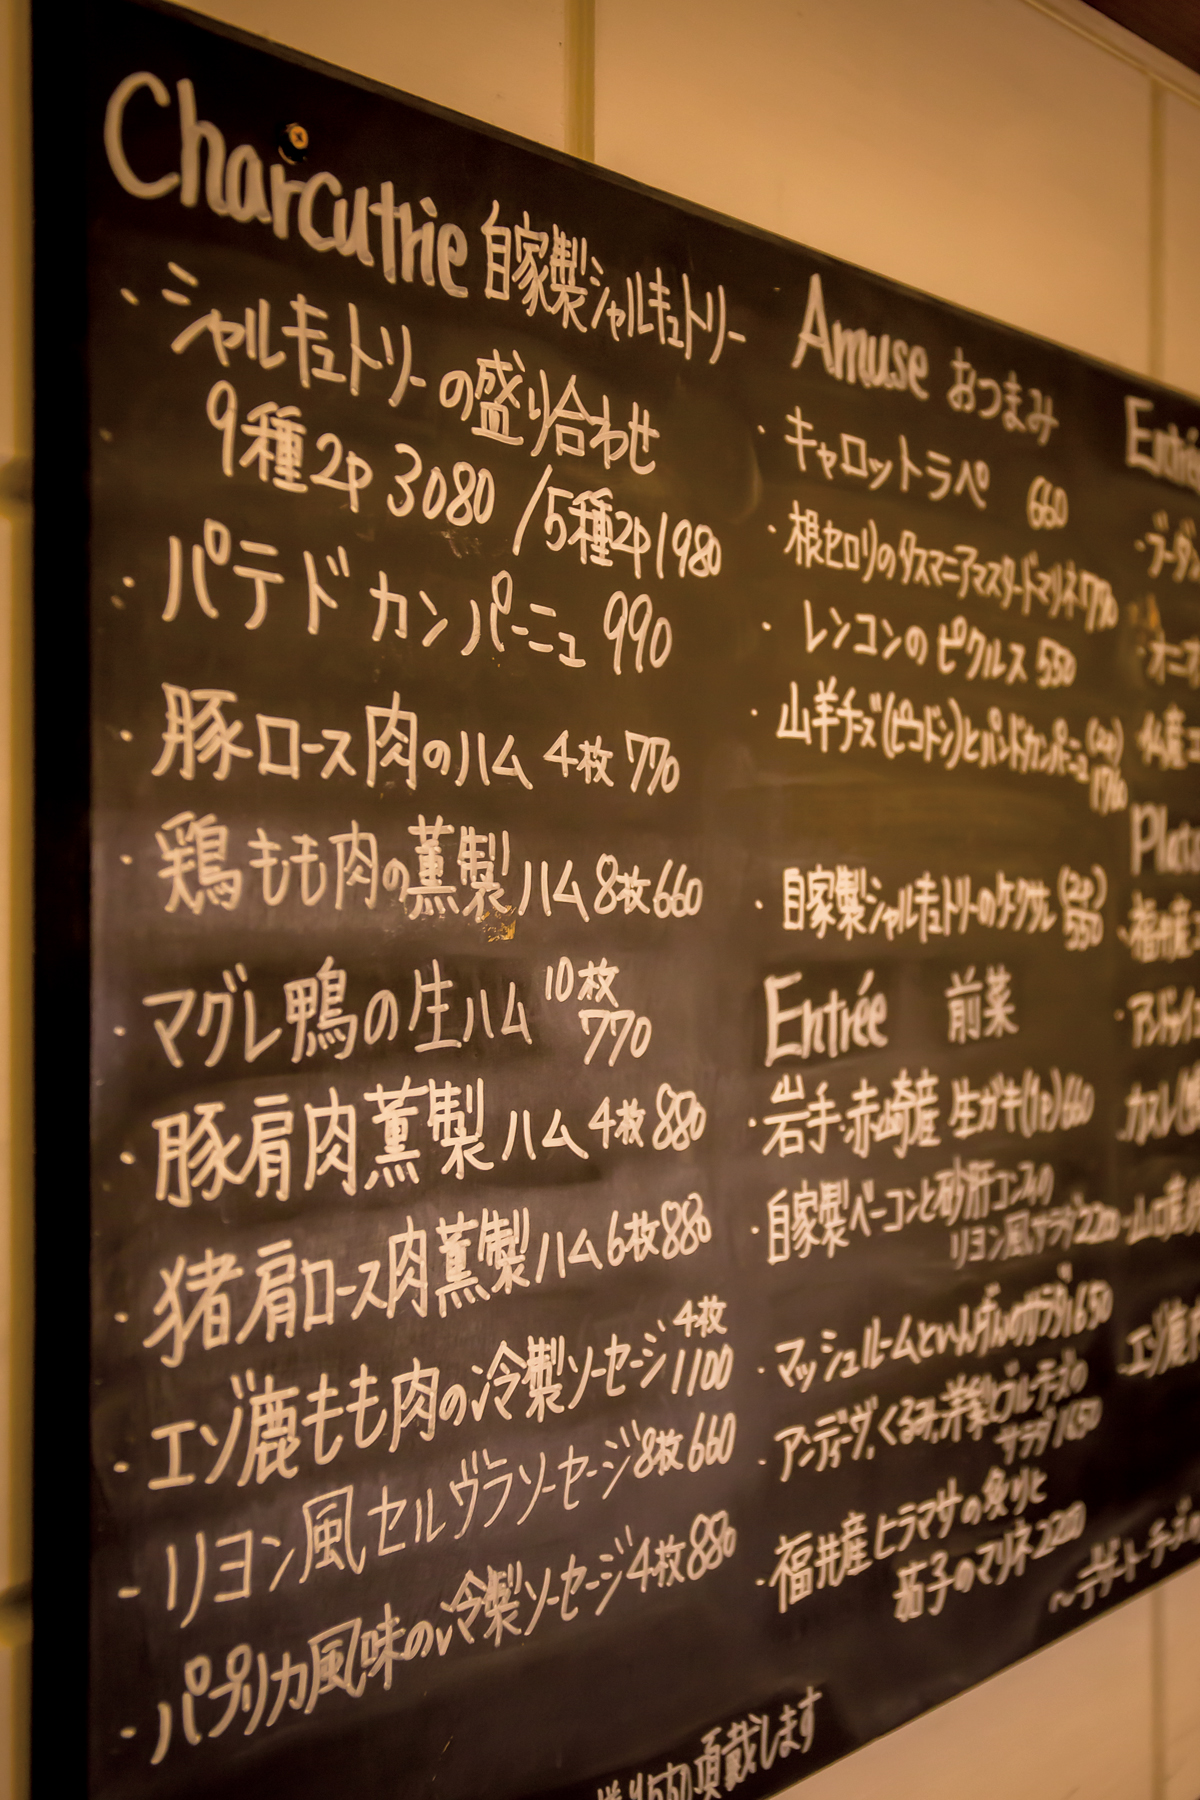 Charcutrie 自家製シャルキュトリー
・シャルキュトリーの盛り合わせ
9種2P 3080 /5種2P1980
・パテドカンパーニュ 990
・豚ロース肉のハム 4枚 770
・鶏もも肉の薫製ハム 8枚660
・マグレ鴨の生ハム 10枚
770
・豚肩肉薫製ハム 4枚 880
・猪肩ロース肉薫製ハム6枚880
・エゾ鹿もも肉の冷製ソーセージ 4枚
1100
・リヨン風セルヴラソーセージ8枚660
・パプリカ風味の冷製ソーセージ4枚880
頂戴します
Amuse おつまみ
・キャロットラペ 660
・根セロリのタスマニアマスタードマリネ770
・レンコンのピクルス 550
・山羊チーズ(ピコドン)とパンドカンパーニュ(2P)
1760
・自家製シャルキュトリーのケークサレ (2P)
550
Entrée 前菜
・岩手・赤崎産 生ガキ(1P)660
・自家製ベーコンと砂肝コンフィの
リヨン風サラダ2200
・マッシュルームといんげんのサラダ1650
・アンディーヴ、くるみ、洋梨、ゴルゴンゾーラの
サラダ1650
・福井産ヒラマサの炙りと
茄子のマリネ2200
〜デザート・チーズ
Entrée
・ブーダン
・オニオ
・仏産
Plats
・福井産
・カスレ
・山口産
・エゾ鹿